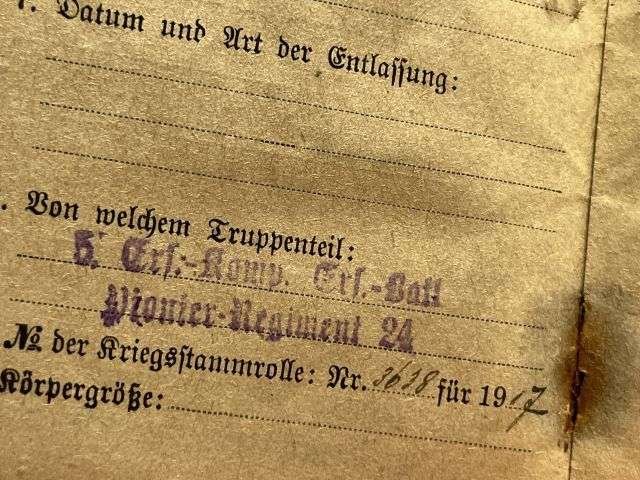 . Datum und Art der Entlassung:
. Von welchem Truppenteil:
5. Ers.-Komp. Ers.-Batl
Pionier-Regiment 24
№ der Kriegsstammrolle: Nr. 3628 für 1917
Körpergröße: